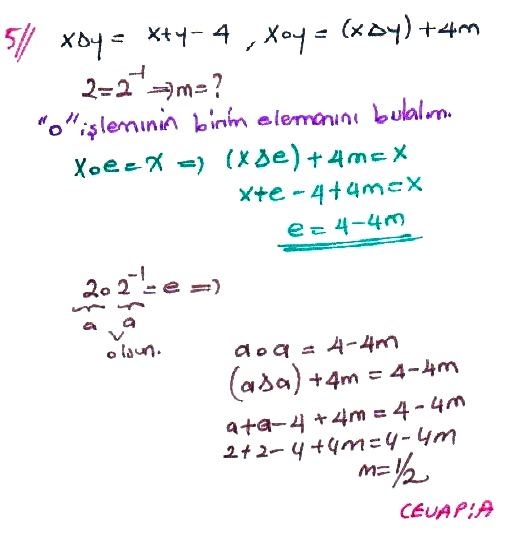 5// x∆y = x+y-4 , xoy = (x∆y)+4m
2=2⁻¹ ⇒ m=?
"o" işleminin birim elemanını bulalım.
xoe=x ⇒ (x∆e)+4m=x
x+e-4+4m=x
e=4-4m
2o2⁻¹=e ⇒
a a
olsun.
aoa = 4-4m
(a∆a)+4m = 4-4m
a+a-4+4m=4-4m
2+2-4+4m=4-4m
m=1/2
CEVAP:A